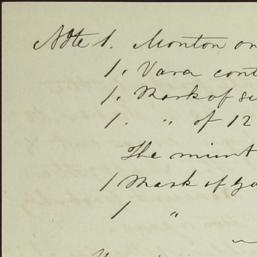 Note 1. Monton on
1. Vara cont
1. Mark of si
1. " of 12
The mint
1 Mark of go
1 "